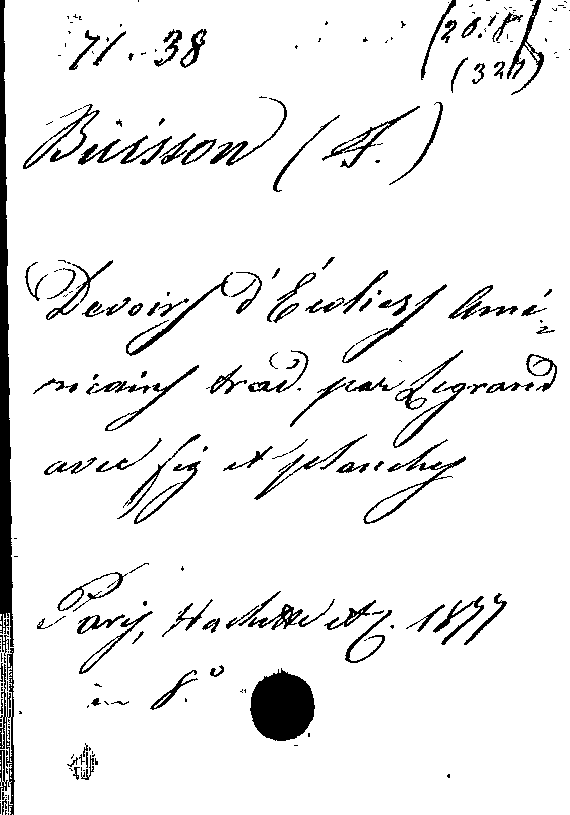 71-38
(20.8)
(327)
Buisson (F.)
Devoirs d'Écoliers Amé-
ricains trad. par Legrand
avec fig et planches
Paris, Hachette et C. 1877
in 8.°